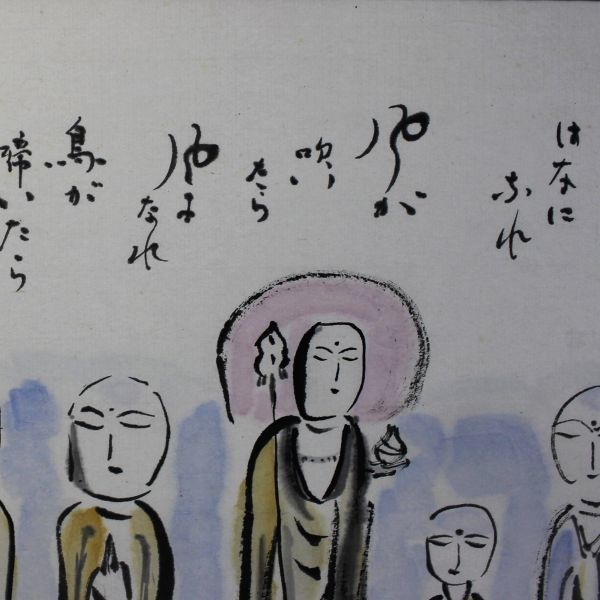 はなに
なれ
風が
吹い
たら
風に
なれ
鳥が
啼いたら